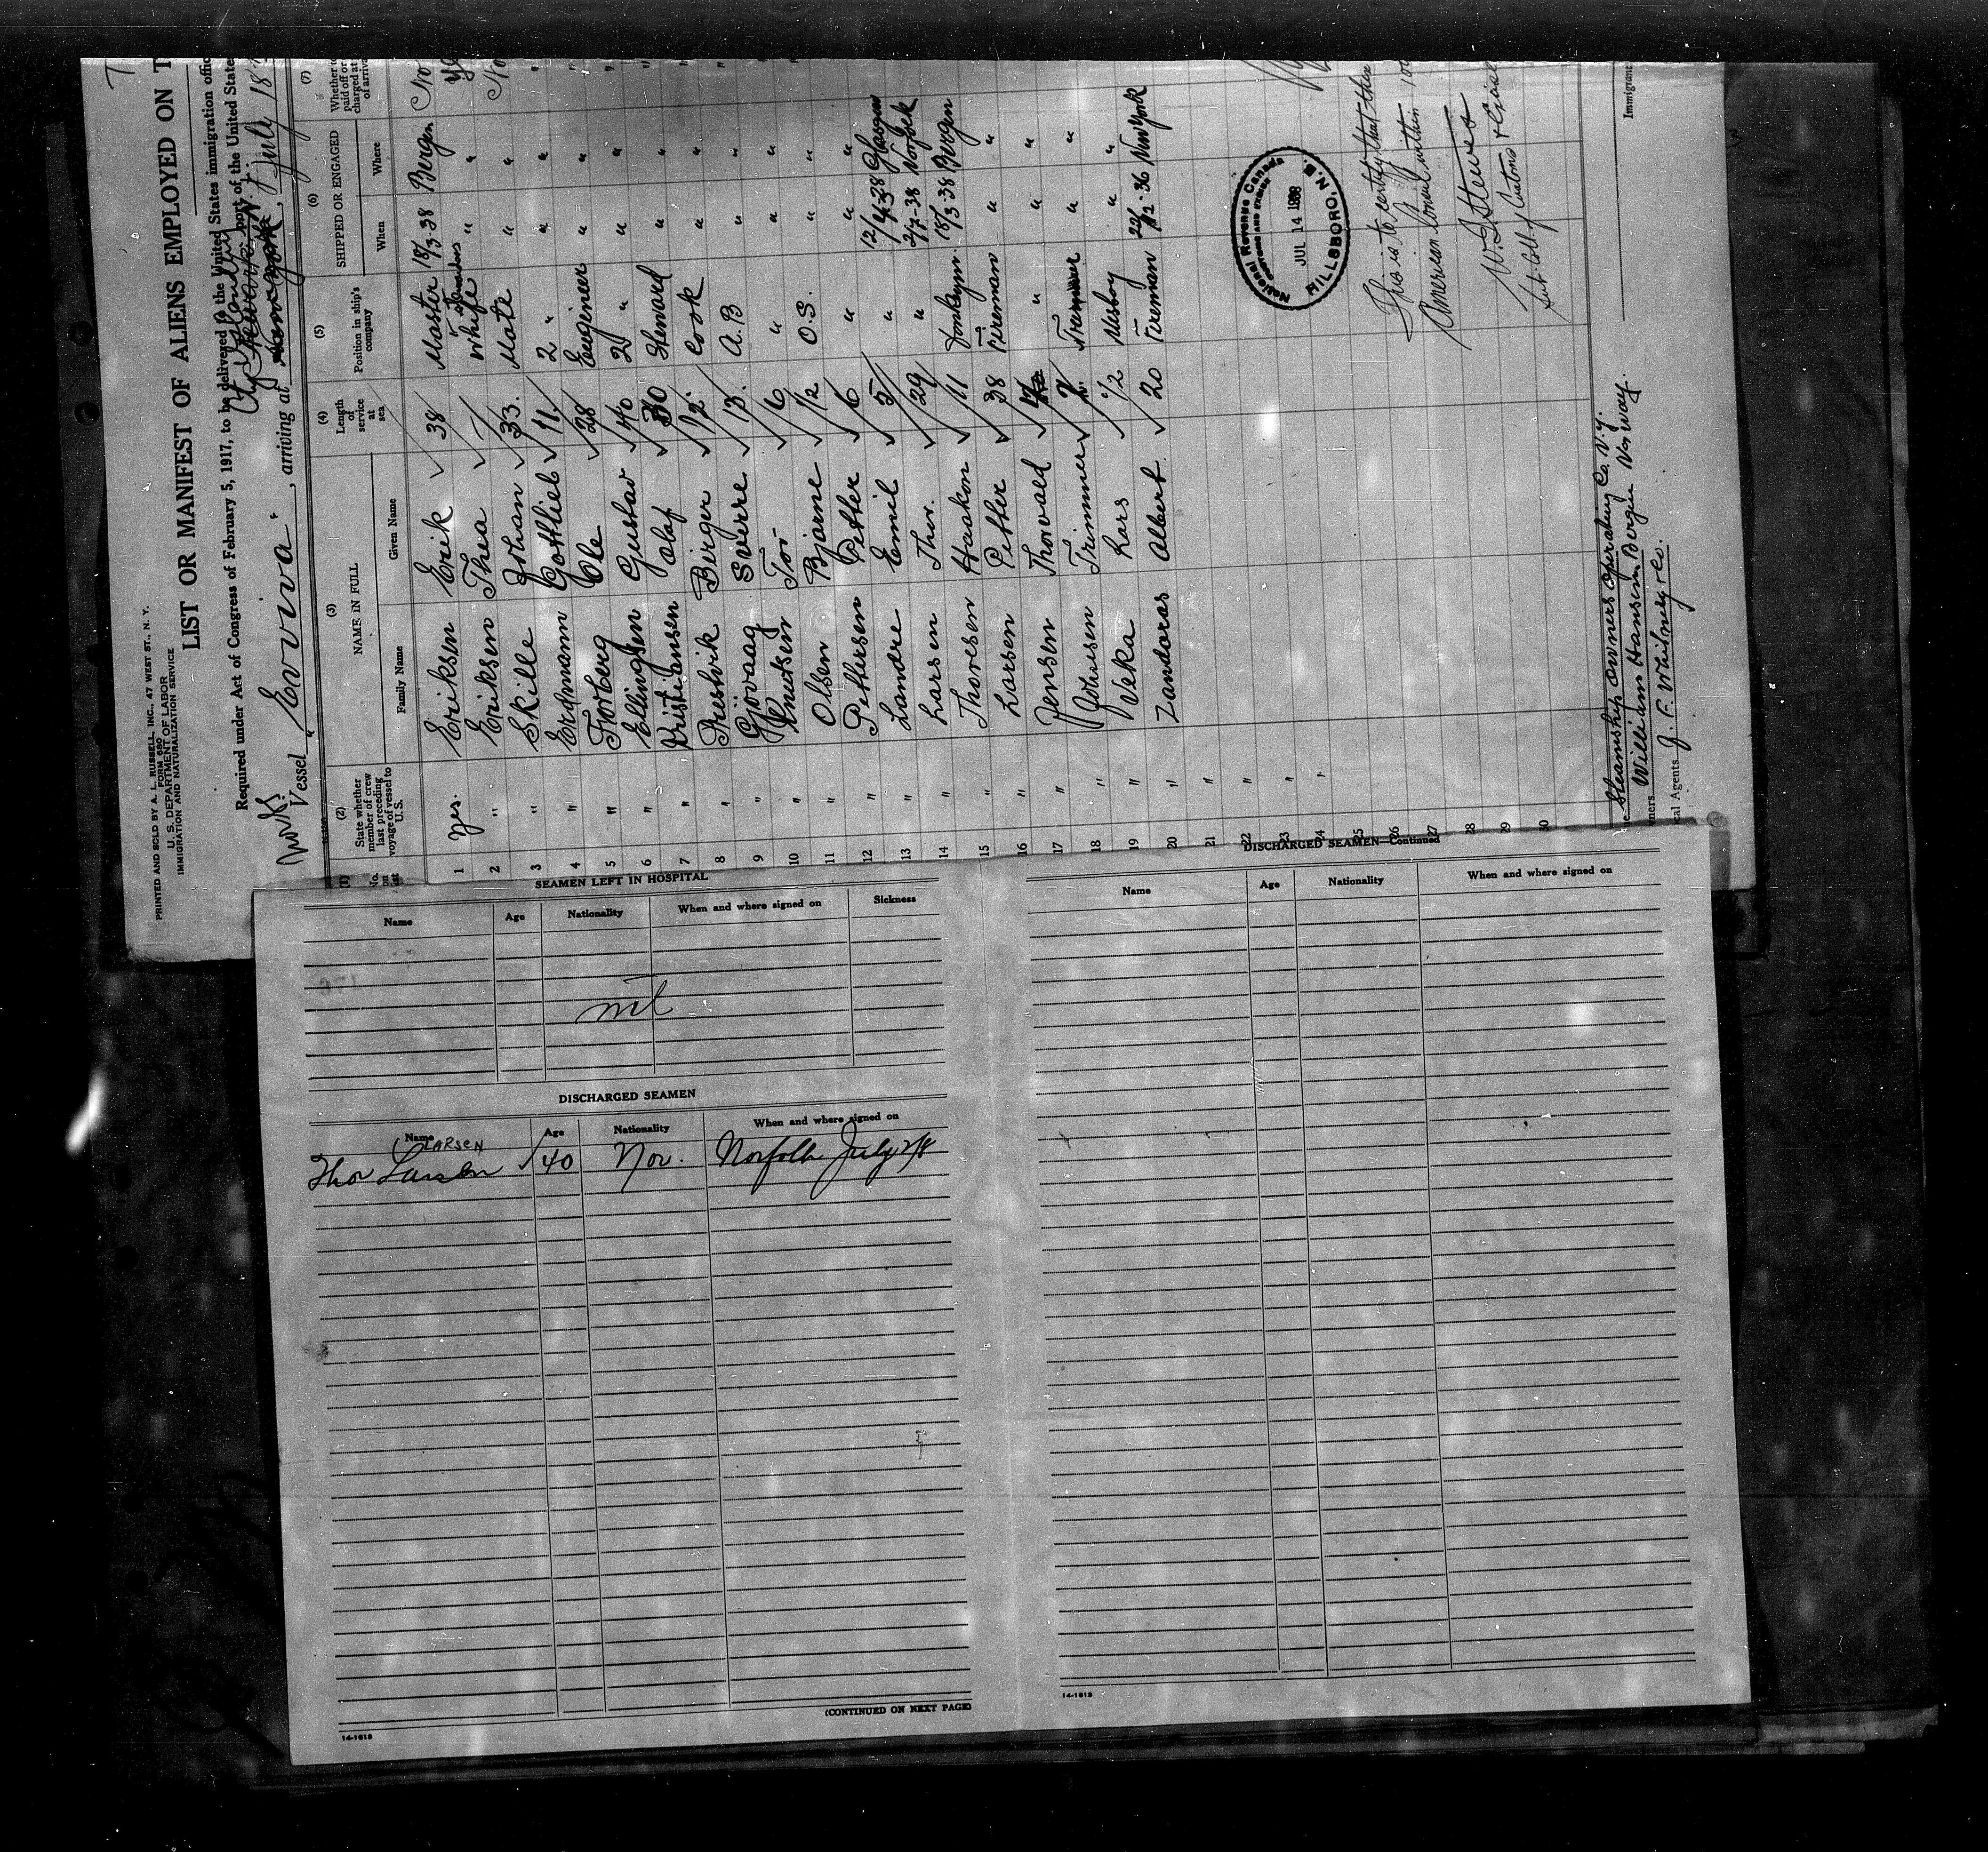 PRINTED AND SOLD BY A. L. RUSSELL, INC., 47 WEST ST., N. Y.
FORM 680
U. S. DEPARTMENT OF LABOR
IMMIGRATION AND NATURALIZATION SERVICE
LIST OR MANIFEST OF ALIENS EMPLOYED ON T
Required under Act of Congress of February 5, 1917, to be delivered to the United States immigration offic
port of the United State
Vessel "Evviva", arriving at New York, July 18
(1) No. on list
(2) State whether member of crew last preceding voyage of vessel to U. S.
(3) NAME IN FULL Family Name Given Name
(4) Length of service at sea
(5) Position in ship's company
(6) SHIPPED OR ENGAGED When Where
(7) Whether to paid off or charged at of arriva
1 Yes. Eriksen Erik 38 Master 18/3-38 Bergen No
2 " Eriksen Thea 1 Whife " " Ye
3 " Skille Johan 33. Mate " " No
4 " Erdmann Gottlieb 11. 2 " " " "
5 " Forberg Ole 28 Engineer " " "
6 " Ellingsen Gustav 40 2 " " " "
7 " Kristiansen Olaf 30 Steward " " "
8 " Prestvik Birger 12. Cook " " "
9 " Gjøvaag Sverre 13. A.B " "
10 " Knutsen Tor 6 " " "
11 " Olsen Bjarne 1/2 O.S. " "
12 " Pettersen Petter 6 " " "
13 " Landre Emil 5 " 12/4-38 Glasgow
14 " Larsen Thor. 29 " 2/7-38 Norfolk
15 " Thoresen Haakon 11 Donkeym. 18/3-38 Bergen
16 " Larsen Petter 38 Fireman " "
17 " Jensen Thorvald " " "
18 " Johnsen Trimmer 2 Trimmer " "
19 " Veka Lars 1/2 Messboy " "
20 " Zandoras Albert 20 Fireman 22/12-36 New York
21 "
22 "
23 "
24 "
25
26
27
28
29
30
National Revenue Canada
JUL 14 1938
HILLSBORO, N.B.
This is to certify that there
American Consul within 100
W. Steeves
Sub. Coll. of Customs & Excise
Immigrant
Steamship Owners Operating Co. N.Y.
ners William Hansen Bergen Norway.
cal Agents J. F. Whitney & Co.
SEAMEN LEFT IN HOSPITAL
Name Age Nationality When and where signed on Sickness
nil
DISCHARGED SEAMEN
Name Age Nationality When and where signed on
LARSEN
Thor Larsen 40 Nor. Norfolk July 2/8
(CONTINUED ON NEXT PAGE)
14-1618
DISCHARGED SEAMEN—Continued
Name Age Nationality When and where signed on
14-1618